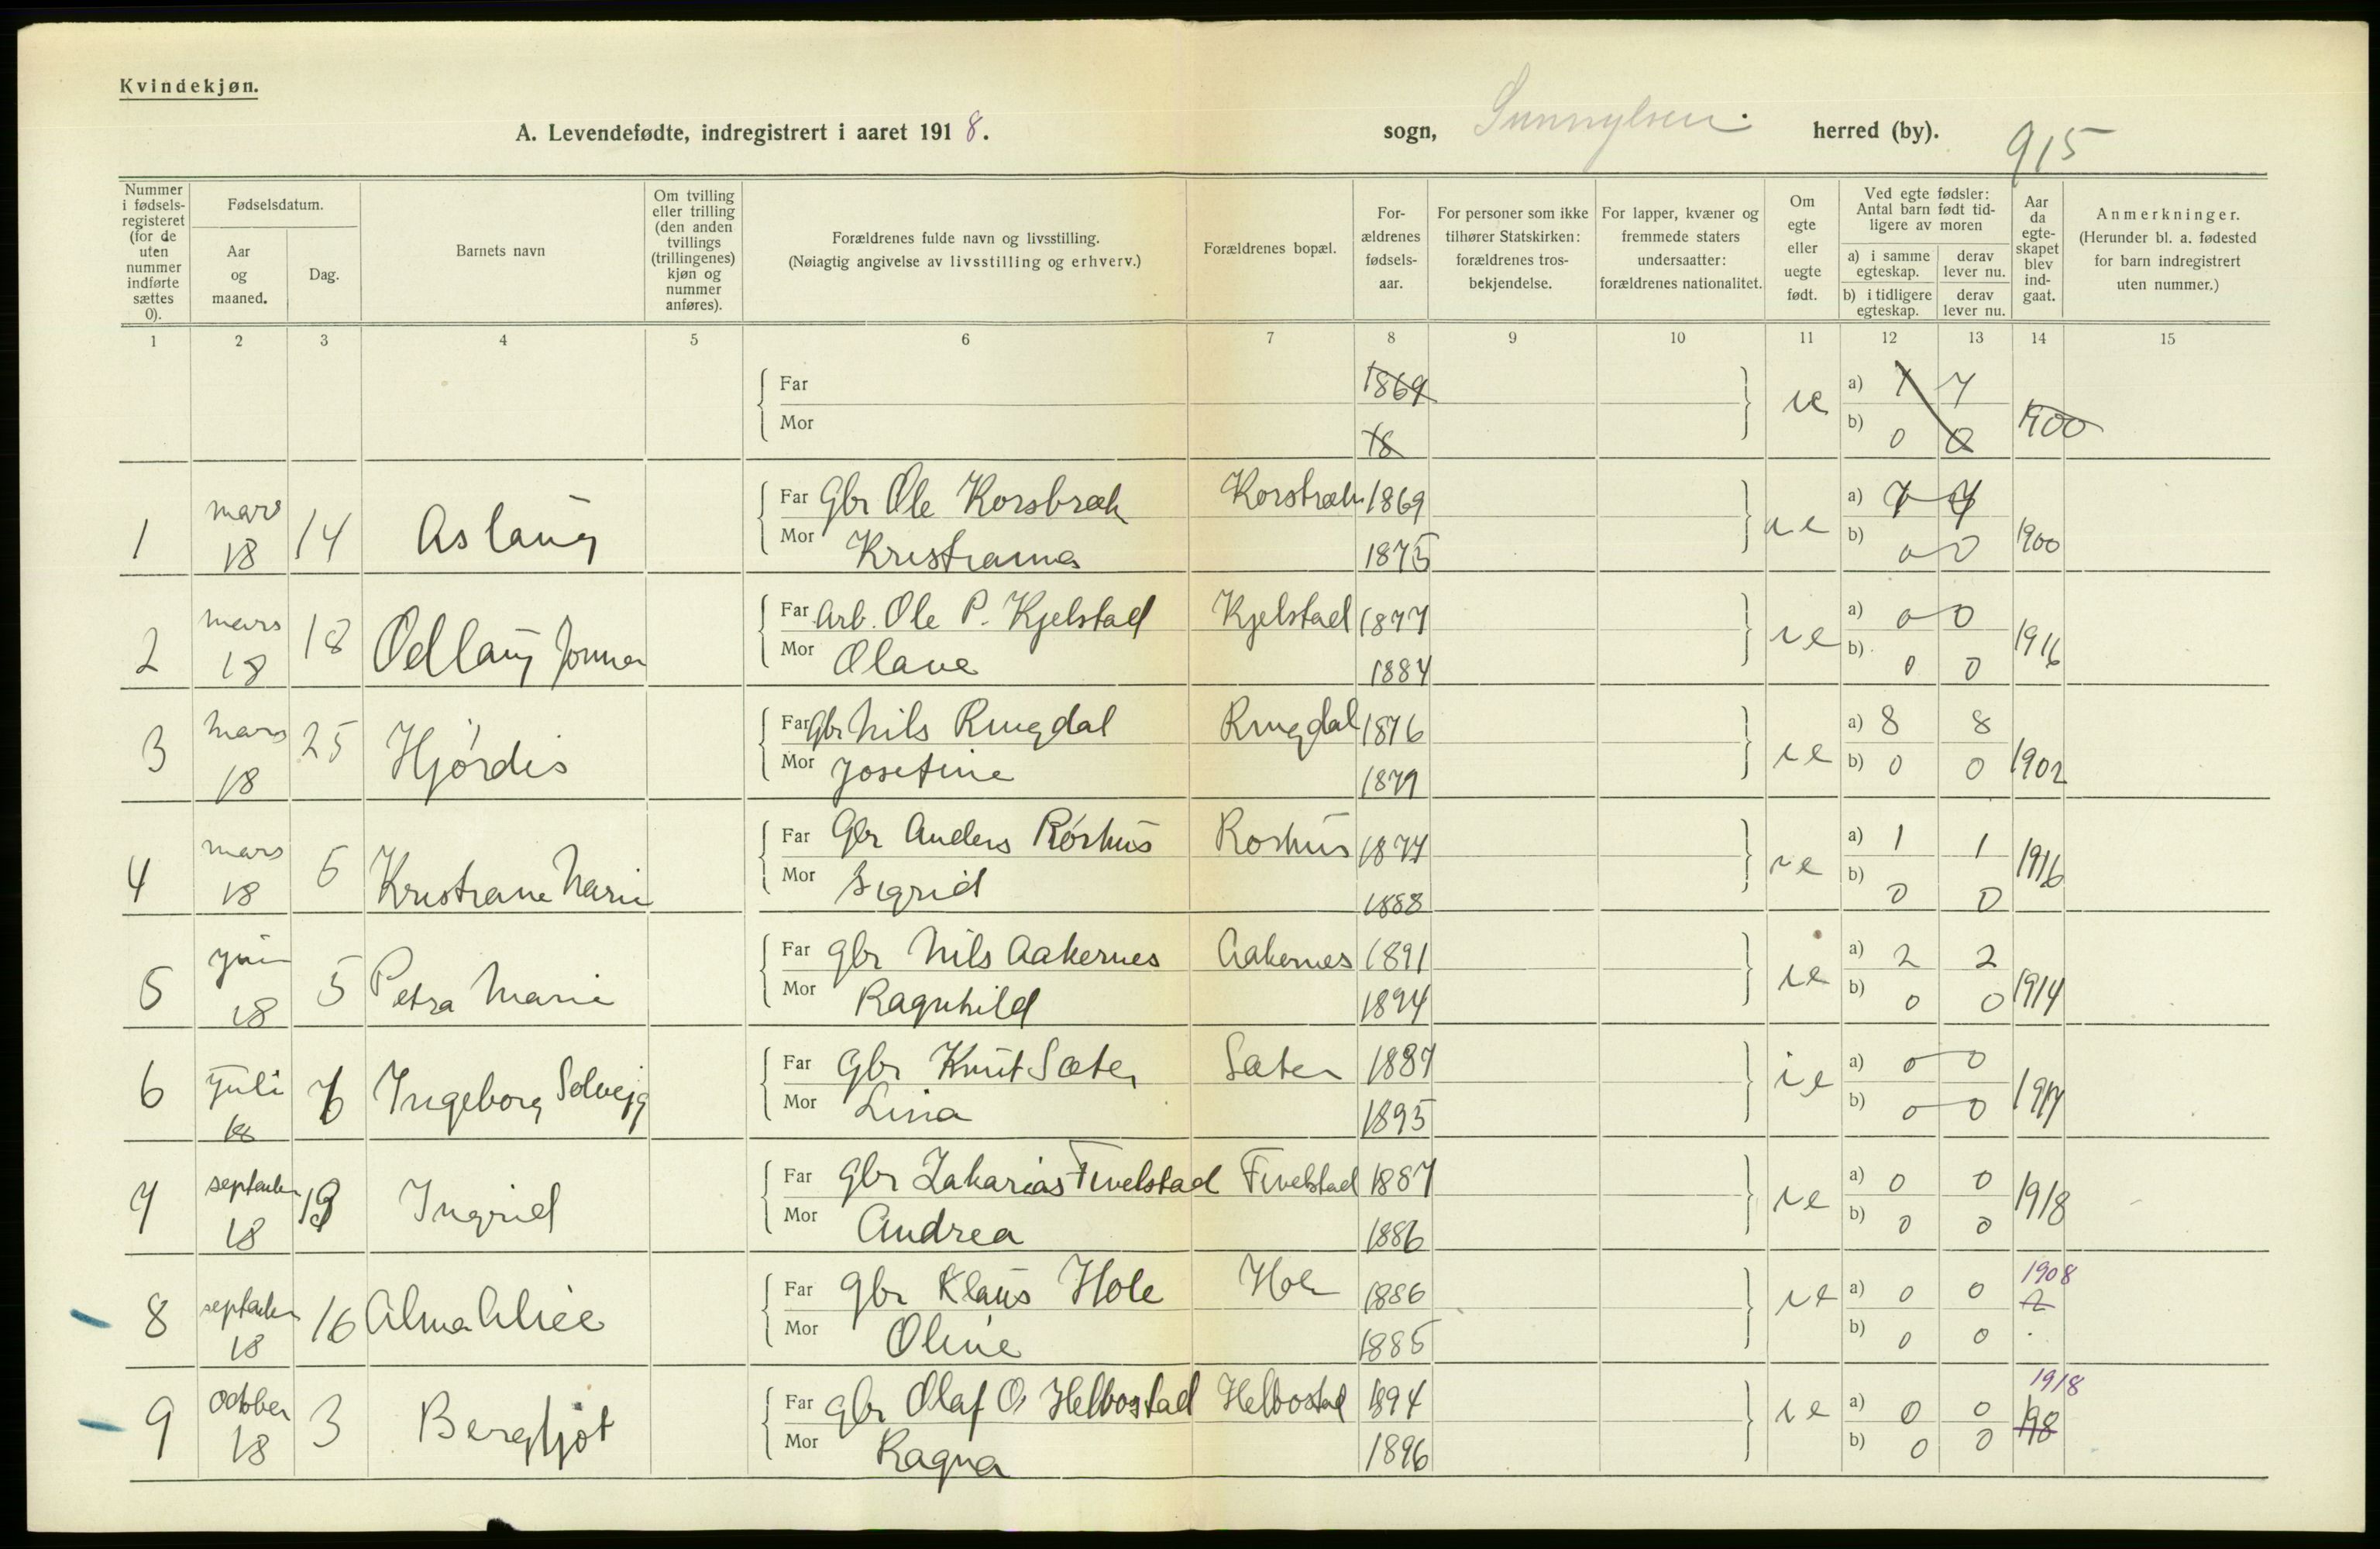 Kvindekjøn.
A. Levendefødte, indregistrert i aaret 1918.
sogn, Sunnylven. herred (by).
915
Nummer i fødsels-registeret (for de uten nummer indførte sættes 0).
Fødselsdatum.
Aar og maaned.
Dag.
Barnets navn
Om tvilling eller trilling (den anden tvillings (trillingenes) kjøn og nummer anføres).
Forældrenes fulde navn og livsstilling.
(Nøiagtig angivelse av livsstilling og erhverv.)
Forældrenes bopæl.
For-ældrenes fødsels-aar.
For personer som ikke tilhører Statskirken: forældrenes tros-bekjendelse.
For lapper, kvæner og fremmede staters undersaatter: forældrenes nationalitet.
Om egte eller uegte født.
Ved egte fødsler: Antal barn født tid-ligere av moren
a) i samme egteskap.
derav lever nu.
b) i tidligere egteskap.
derav lever nu.
Aar da egte-skapet blev ind-gaat.
Anmerkninger.
(Herunder bl. a. fødested for barn indregistrert uten nummer.)
1 2 3 4 5 6 7 8 9 10 11 12 13 14 15
Far 1869 ie a) 7 7
Mor 18 b) 0 0 1900
1 mars 18 14 Aslaug Far Gbr Ole Korsbræk Korsbræk 1869 a) 7 7
Mor Kristianna 1875 b) 0 0 1900
2 mars 18 18 Odlaug Far Arb. Ole P. Kjelstad Kjelstad 1877 ie a) 0 0
Mor Olave 1884 b) 0 0 1916
3 mars 18 25 Hjørdis Far Gbr Nils Ringdal Ringdal 1876 ie a) 8 8
Mor Josefine 1879 b) 0 0 1902
4 mars 18 5 Kristiane Marie Far Gbr Anders Rørhus Rørhus 1877 ie a) 1 1
Mor Sigrid 1888 b) 0 0 1916
5 juni 18 5 Petra Marie Far gbr Nils Aakernes Aakernes 1891 ie a) 2 2
Mor Ragnhild 1894 b) 0 0 1914
6 juli 18 Ingeborg Solveig Far Gbr Knut Sæter Sæter 1887 ie a) 0 0
Mor Lina 1895 b) 0 0 1917
7 september 18 Ingrid Far Gbr Zakarias Fivelstad Fivelstad 1887 ie a) 0 0
Mor Andrea 1886 b) 0 0 1918
8 september 18 16 Alma Alice Far gbr Klaus Hole Hole 1886 ie a) 0 0 1908 2
Mor Oline 1885 b) 0 0
9 october 18 3 Bergljot Far gbr Olaf O. Helbostad Helbostad 1894 ie a) 0 0 1918 198
Mor Ragna 1896 b) 0 0